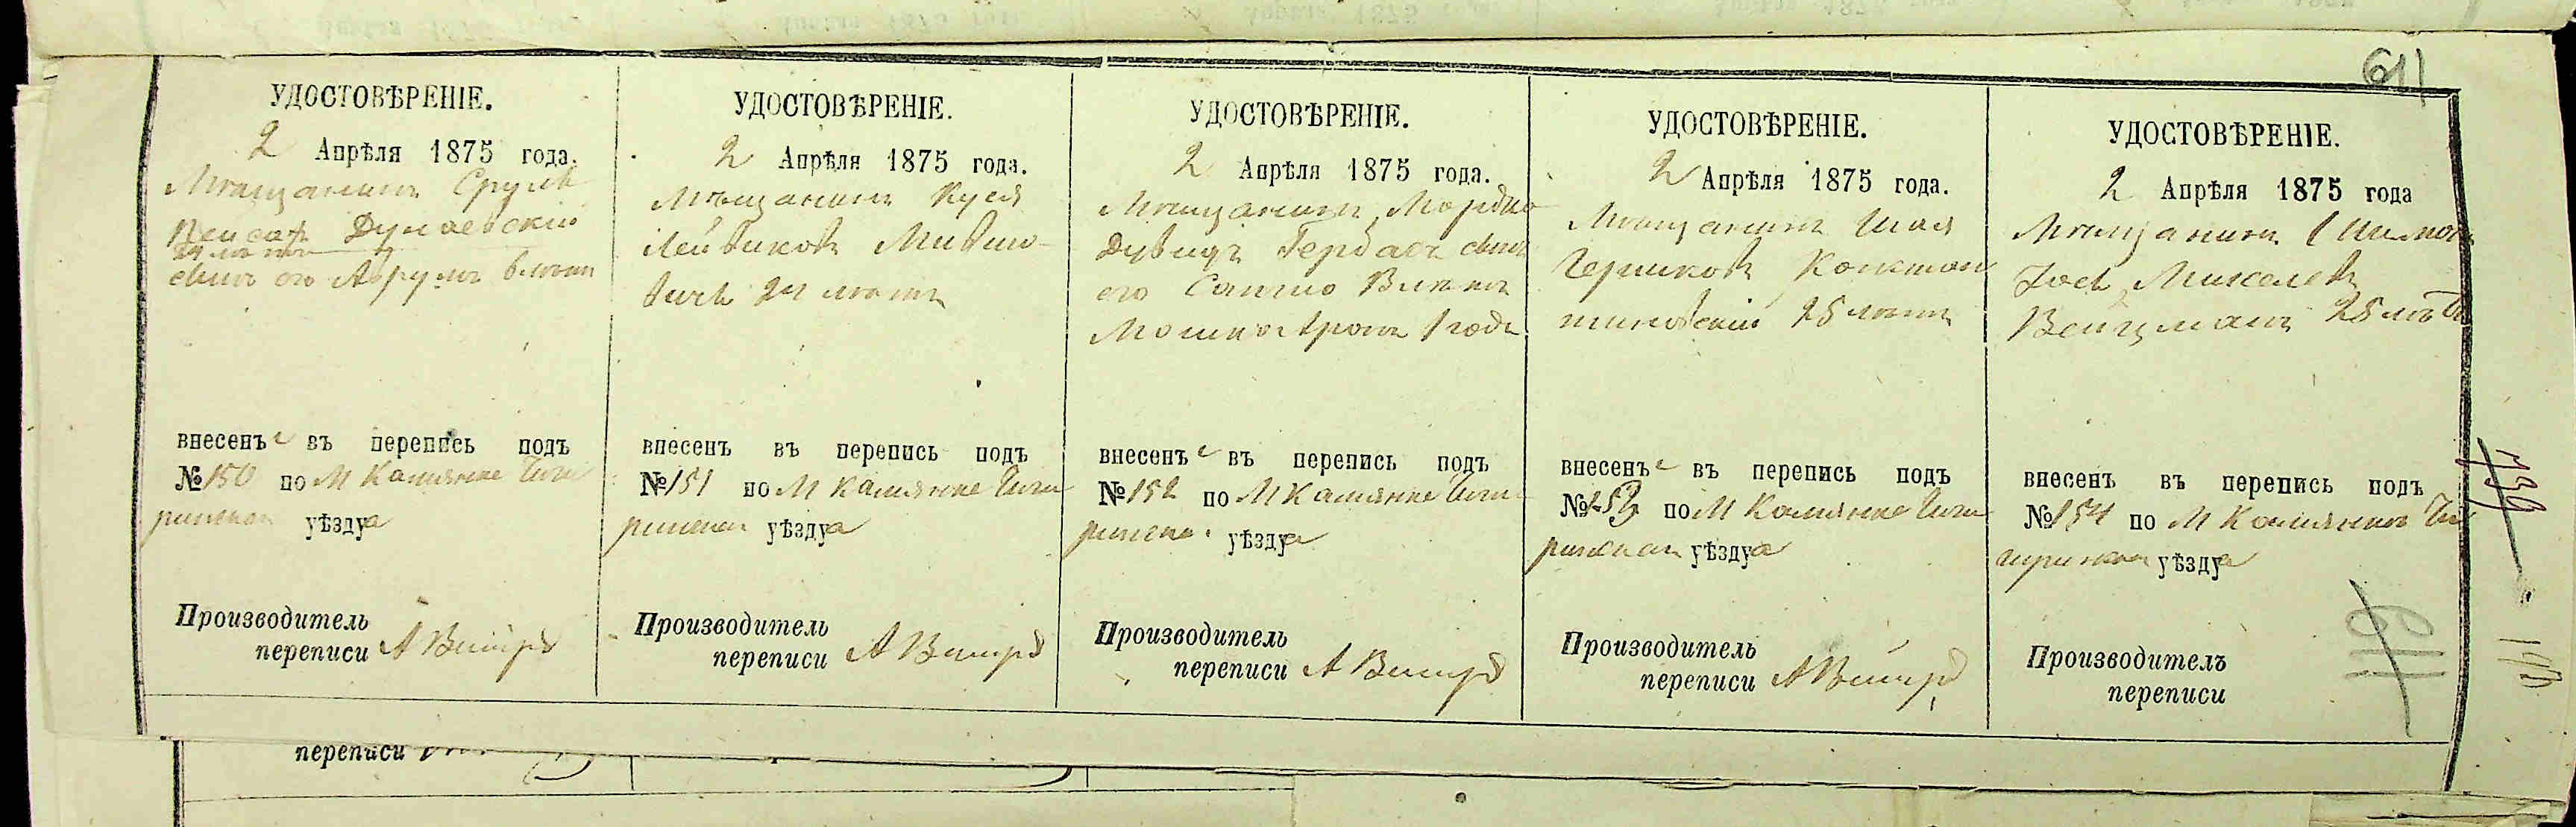 611
УДОСТОВѢРЕНІЕ.
2 Апрѣля 1875 года.
Мѣщанинъ Сруль
Пейсах Дунаевскій
сынъ его Аврумъ 6 лѣтъ
внесенъ въ перепись подъ
№ 150 по М Камянке Чиги
ринскаго уѣзда
Производитель
переписи А
УДОСТОВѢРЕНІЕ.
2 Апрѣля 1875 года.
Мѣщанинъ Куся
Лейбиковъ
24 лѣтъ
внесенъ въ перепись подъ
№ 151 по М Камянке Чиги
ринскаго уѣзда
Производитель
переписи А
УДОСТОВѢРЕНІЕ.
2 Апрѣля 1875 года.
Мѣщанинъ Мордко
Дувидъ Гербахъ сынъ
его
Мошко Аронъ 1 года
внесенъ въ перепись подъ
№ 152 по М Камянке Чиги
ринска уѣзда
Производитель
переписи А
УДОСТОВѢРЕНІЕ.
2 Апрѣля 1875 года.
Мѣщанинъ Шая
Гершковъ Констан
тиновскій 25 лѣтъ
внесенъ въ перепись подъ
№ 153 по М Камянке Чиги
ринскаго уѣзда
Производитель
переписи А
УДОСТОВѢРЕНІЕ.
2 Апрѣля 1875 года
Мѣщанинъ Шимон
Іось Михелевъ
Вейцманъ 25 лѣтъ
внесенъ въ перепись подъ
№ 154 по М Камянке Чи
гиринскаго уѣзда
Производитель
переписи
611
переписи